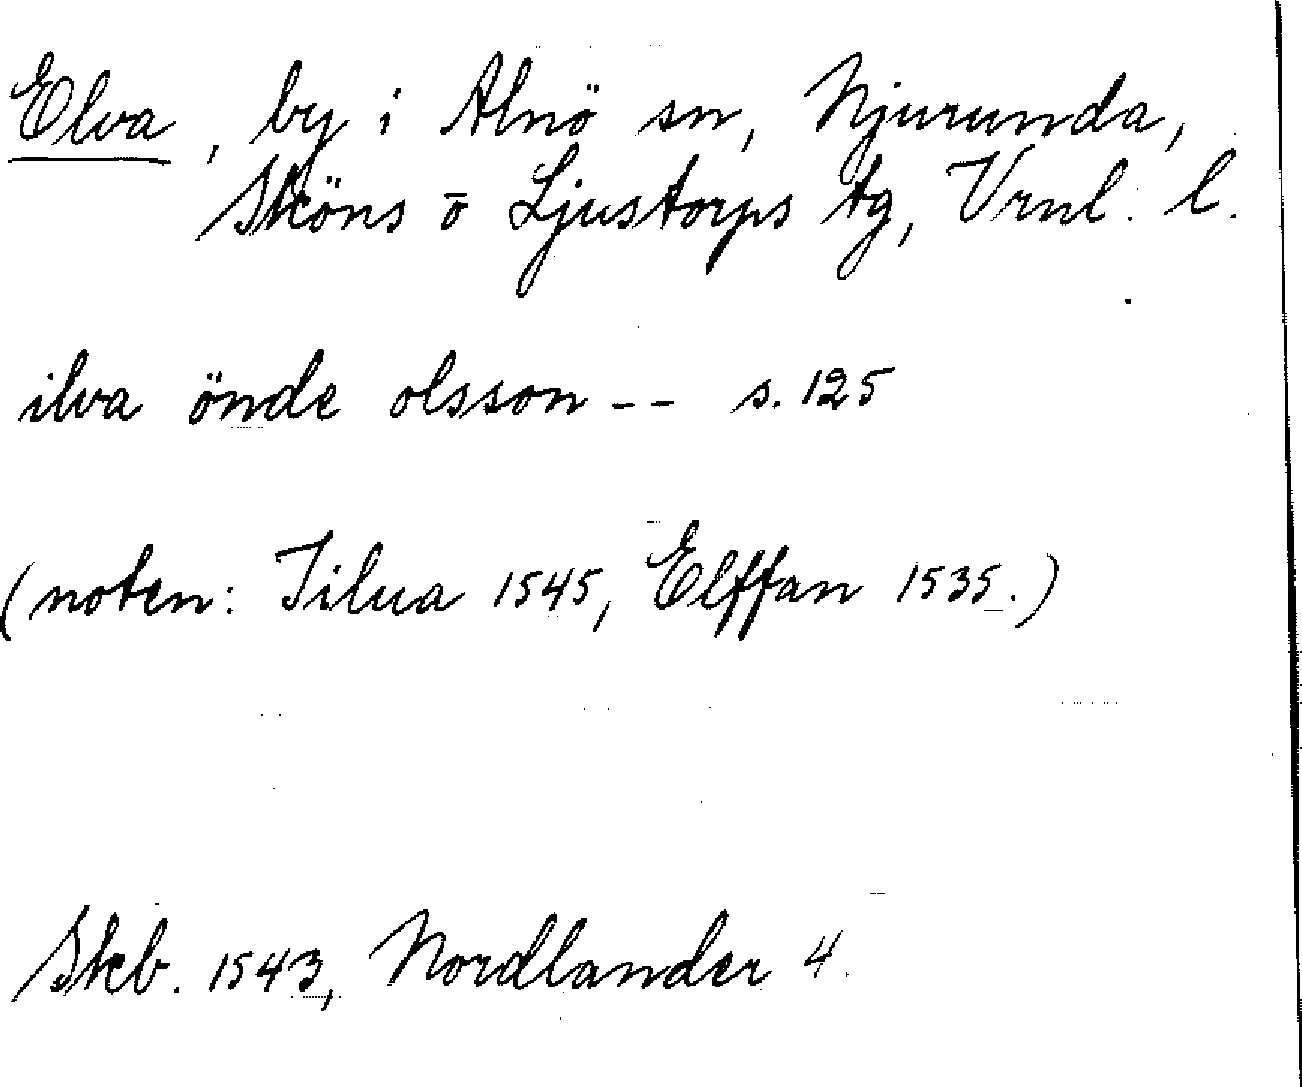 Elva, by i Alnö sn, Njurunda,
Sköns ō Ljustorps tg, Vrnl. l.
ilva önde olsson -- s. 125
(noten: Iilua 1545, Elffan 1535.)
Skb. 1543, Nordlander 4.